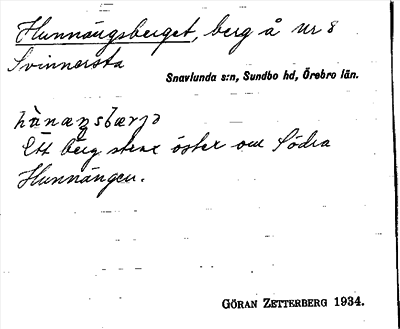 Hunnängsberget, berg å nr 8
Svinnersta
Snavlunda s:n, Sundbo hd, Örebro län.
Ett berg strax öster om Södra
Hunnängen.
GÖRAN ZETTERBERG 1934.